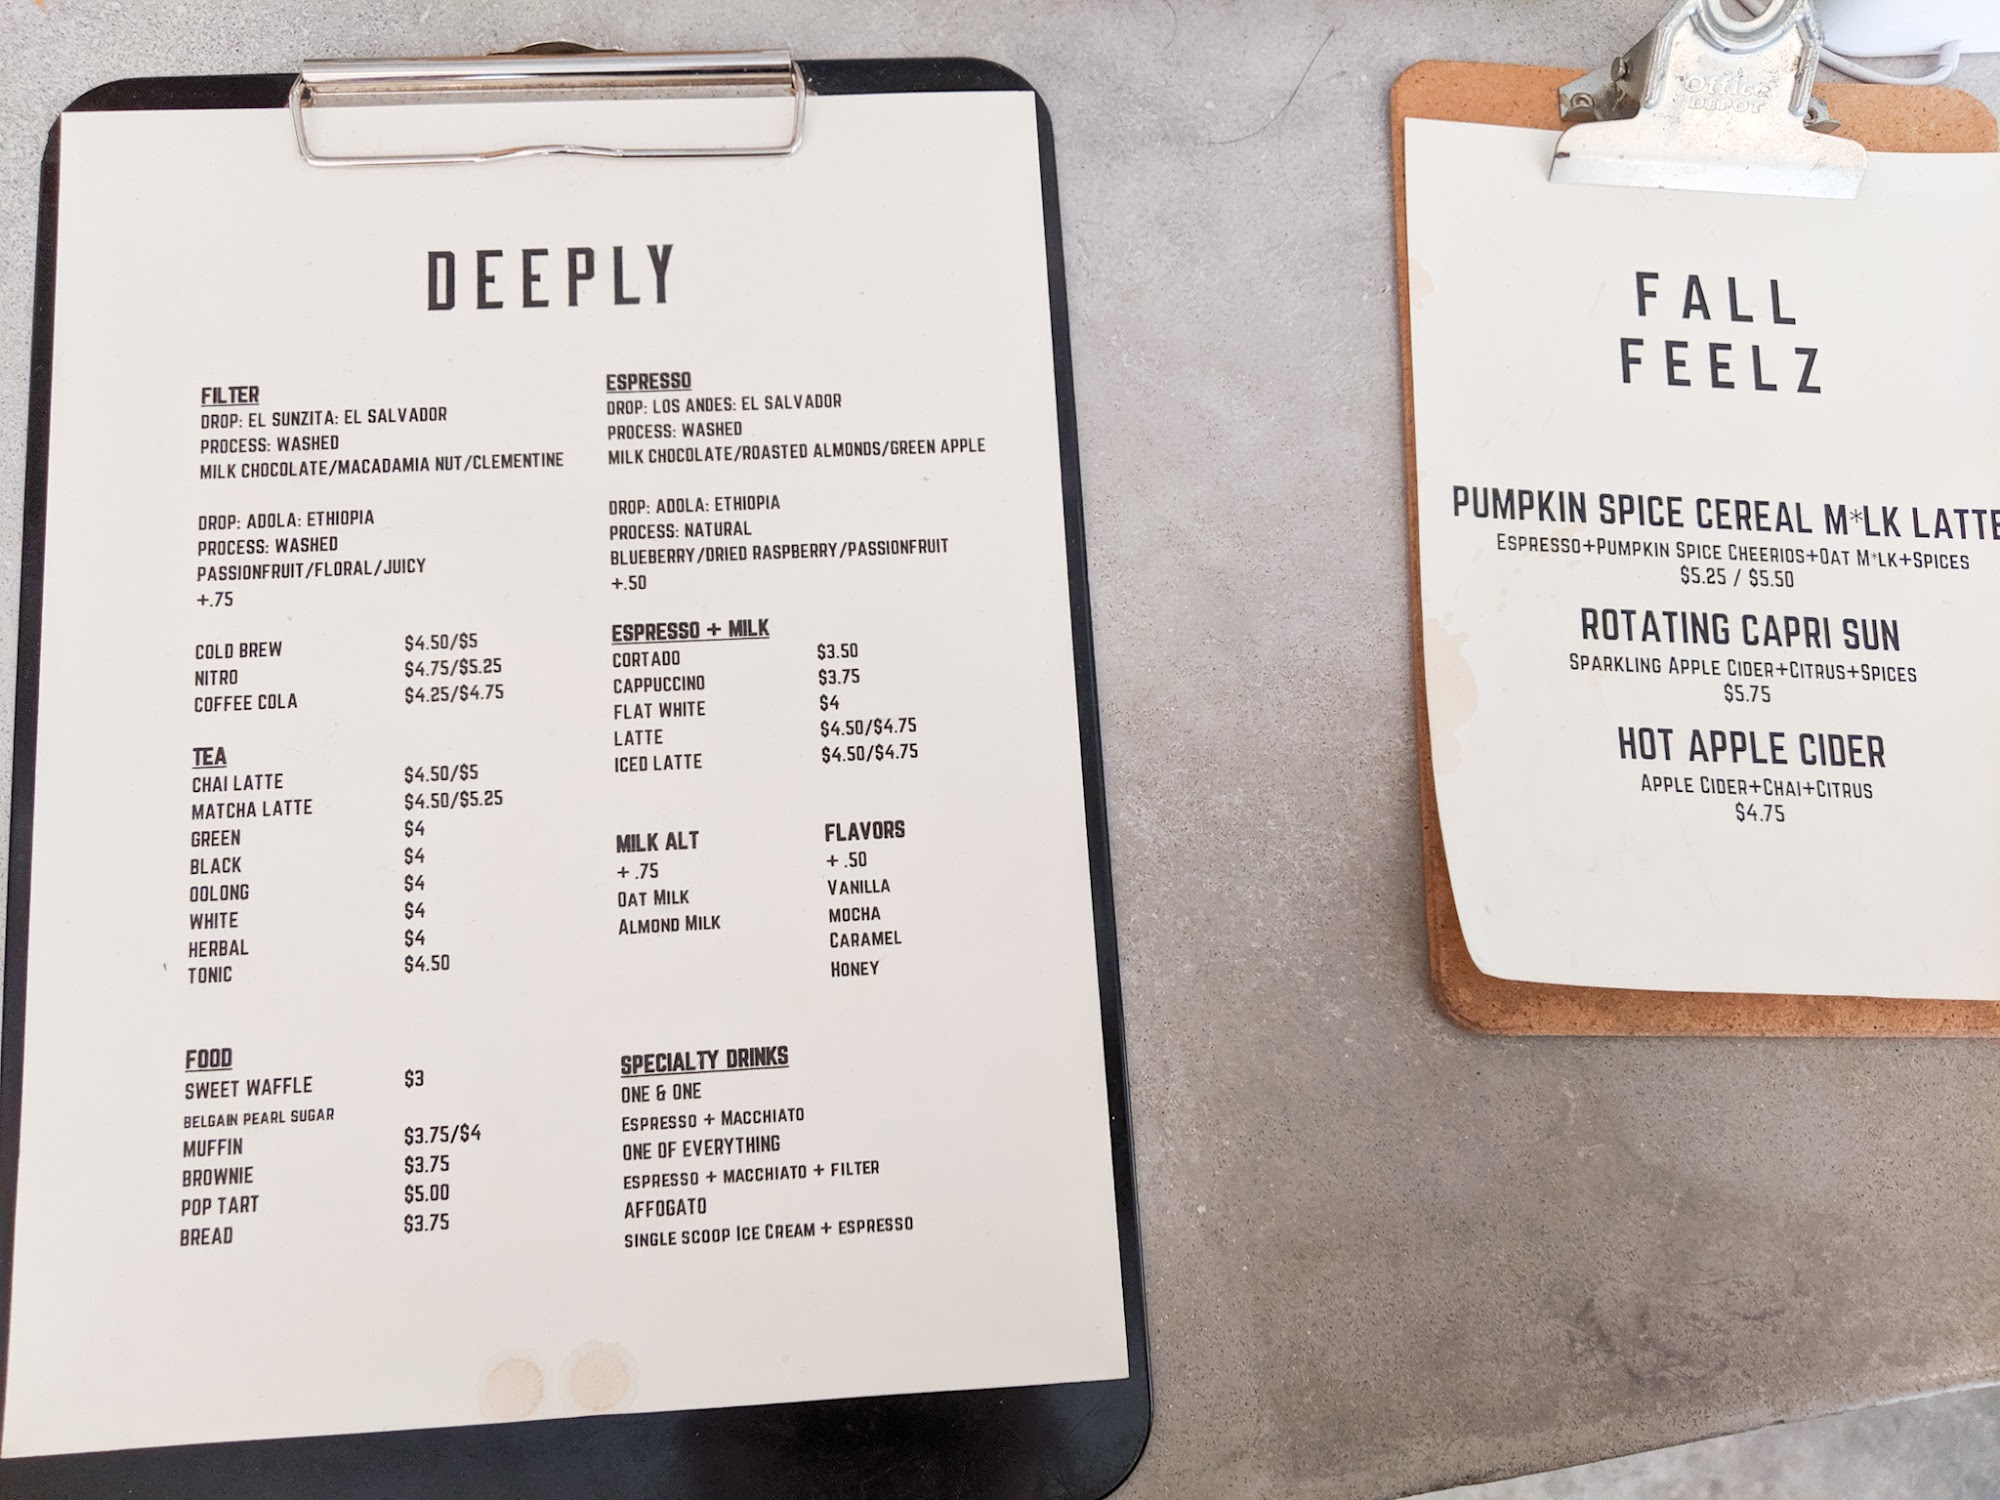 DEEPLY
FILTER
DROP: EL SUNZITA: EL SALVADOR
PROCESS: WASHED
MILK CHOCOLATE/MACADAMIA NUT/CLEMENTINE
DROP: ADOLA: ETHIOPIA
PROCESS: WASHED
PASSIONFRUIT/FLORAL/JUICY
+.75
COLD BREW $4.50/$5
NITRO $4.75/$5.25
COFFEE COLA $4.25/$4.75
TEA
CHAI LATTE $4.50/$5
MATCHA LATTE $4.50/$5.25
GREEN $4
BLACK $4
OOLONG $4
WHITE $4
HERBAL $4
TONIC $4.50
FOOD
SWEET WAFFLE $3
BELGAIN PEARL SUGAR
MUFFIN $3.75/$4
BROWNIE $3.75
POP TART $5.00
BREAD $3.75
ESPRESSO
DROP: LOS ANDES: EL SALVADOR
PROCESS: WASHED
MILK CHOCOLATE/ROASTED ALMONDS/GREEN APPLE
DROP: ADOLA: ETHIOPIA
PROCESS: NATURAL
BLUEBERRY/DRIED RASPBERRY/PASSIONFRUIT
+.50
ESPRESSO + MILK
CORTADO $3.50
CAPPUCCINO $3.75
FLAT WHITE $4
LATTE $4.50/$4.75
ICED LATTE $4.50/$4.75
MILK ALT
+ .75
OAT MILK
ALMOND MILK
FLAVORS
+ .50
VANILLA
MOCHA
CARAMEL
HONEY
SPECIALTY DRINKS
ONE & ONE
ESPRESSO + MACCHIATO
ONE OF EVERYTHING
ESPRESSO + MACCHIATO + FILTER
AFFOGATO
SINGLE SCOOP ICE CREAM + ESPRESSO
Office
DEPOT
FALL
FEELZ
PUMPKIN SPICE CEREAL M*LK LATTE
ESPRESSO+PUMPKIN SPICE CHEERIOS+OAT M*LK+SPICES
$5.25 / $5.50
ROTATING CAPRI SUN
SPARKLING APPLE CIDER+CITRUS+SPICES
$5.75
HOT APPLE CIDER
APPLE CIDER+CHAI+CITRUS
$4.75